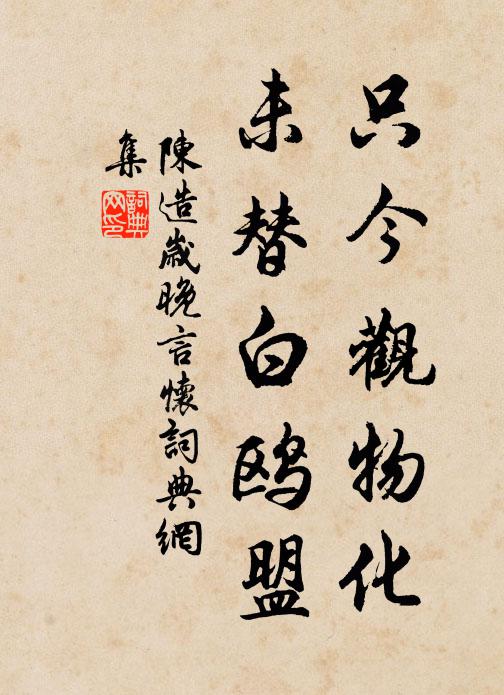 只今觀物化
未替白鸥盟
陳造歲晚言懷詞典網
集
詞典
网印